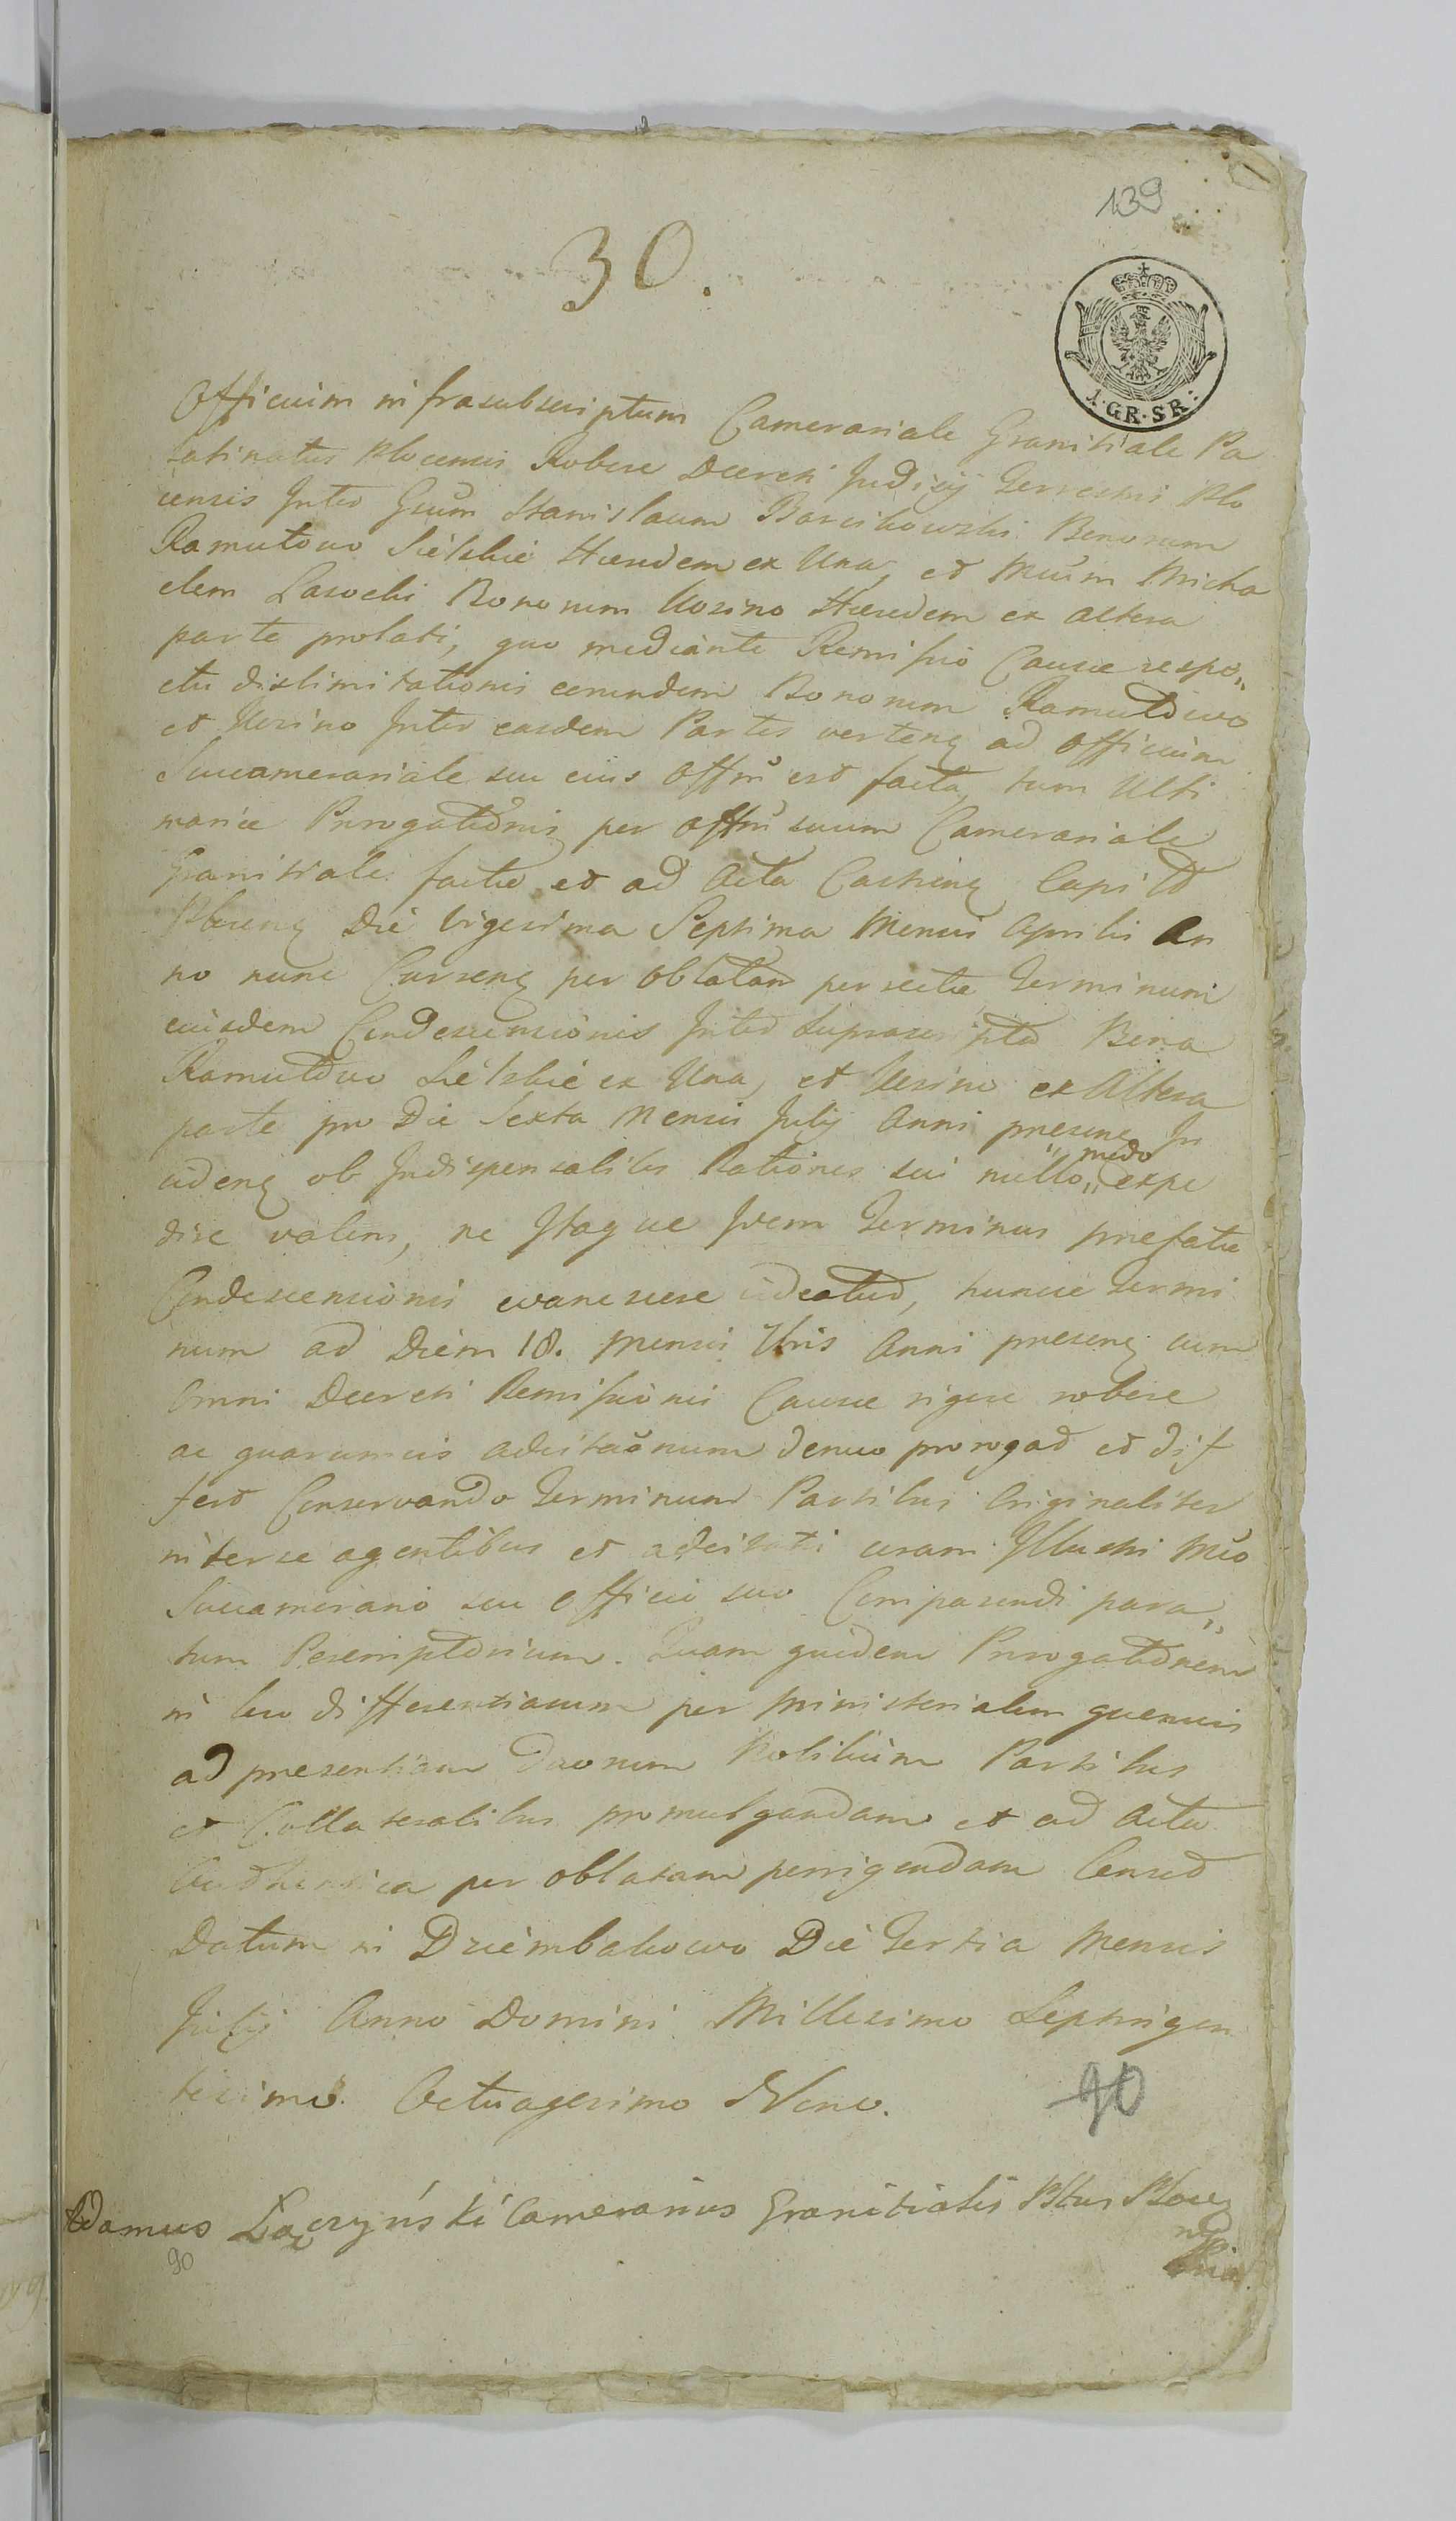 139
30.
1·GR·SR:
Officium infrasubscriptum Camerariale Granitiale Pa
latinatus Plocensis Robore Decreti Judicij Terrestris Plo
censis Inter Gsum Stanislaum Barcikowski Bonorum
Ramutowo Sielskie Hæredem ex Una, et Mcum Micha
elem Lasocki Bonorum Uosino Hæredem ex altera
parte prolati, quo mediante Remissio Causæ respe„
ctu distimitationis eorundem Bonorum Ramutowo
et Uosino Inter easdem Partes verteng ad Officium
Succamerariale seu eius Offm est facta, tum Ulti
mariæ Prorogationis per Offm suum Camerariale
Granitiale factæ et ad Acta Castreng Capitt
Ploceng Die Vigesima Septima Mensis Aprilis An
no nunc Curreng per Oblatam porrectæ Terminum
eiusdem Condescensionis Inter suprascripta Bona
Ramutowo Sielskie ex Una, et Uosino ex Altera
parte pro Die Sexta Mensis Julij Anni præseng In
cideng ob Indispensabiles Rationes sui nullo„ modo expe
dire valens, ne Itaque Idem Terminus præfatæ
Condescensionis evanescere videatur, huncce termi
num ad Diem 18. Mensis 7bris Anni præseng cum
Omni Decreti Remissionis Causæ vigore robore
ac quarumvis adcitaōnum denuo prorogat et dif
fert Conservando Terminum Partibus Originaliter
inter se agentibus et adcitatis coram Illustri Mco
Succamerario seu Officio suo Comparendi para„
tum Peremptorium. Quam quidem Prorogationem
in loco differentiarum per Ministerialem quemvis
ad præsentiam Duorum Nobilium Partibus
et Collateralibus promulgandam et ad Acta
Authentica per oblatam porrigendam Censet
Datum in Dziembakowo Die Tertia Mensis
Julij Anno Domini Millesimo Septingen
tesimo Octuagesimo Nono.
90
Adamus Łączyński Camerarius Granitialis Pltus Ploceng
mp.
90